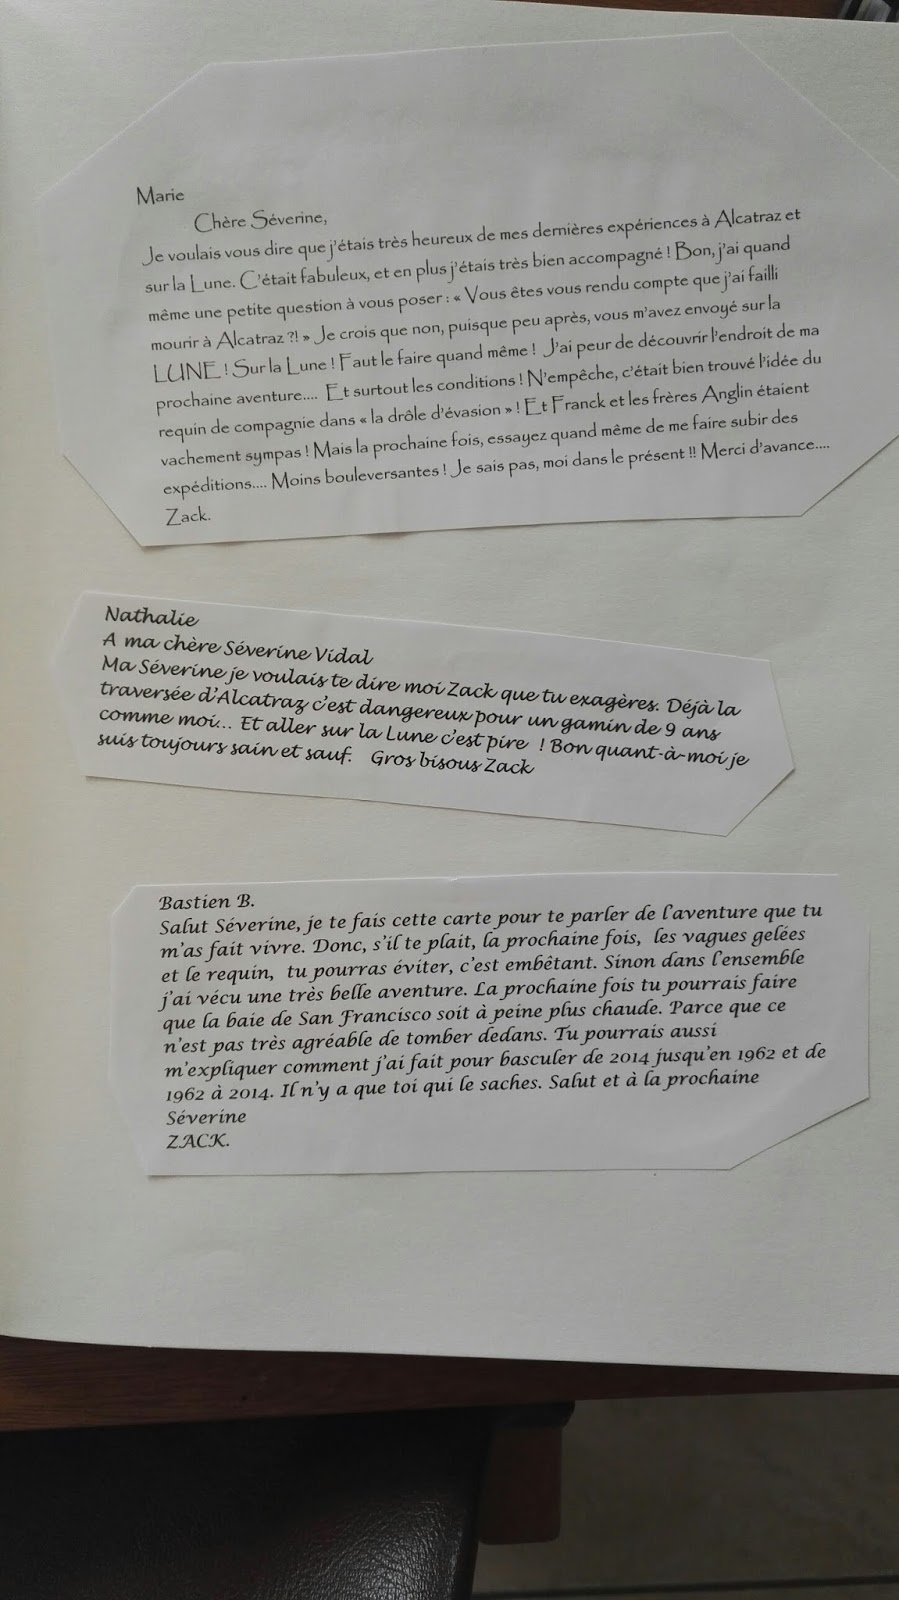 Marie
Chère Séverine,
Je voulais vous dire que j'étais très heureux de mes dernières expériences à Alcatraz et
sur la Lune. C'était fabuleux, et en plus j'étais très bien accompagné ! Bon, j'ai quand
même une petite question à vous poser : « Vous êtes vous rendu compte que j'ai failli
mourir à Alcatraz ?! » Je crois que non, puisque peu après, vous m'avez envoyé sur la
LUNE ! Sur la Lune ! Faut le faire quand même ! J'ai peur de découvrir l'endroit de ma
prochaine aventure.... Et surtout les conditions ! N'empêche, c'était bien trouvé l'idée du
requin de compagnie dans « la drôle d'évasion » ! Et Franck et les frères Anglin étaient
vachement sympas ! Mais la prochaine fois, essayez quand même de me faire subir des
expéditions.... Moins bouleversantes ! Je sais pas, moi dans le présent !! Merci d'avance....
Zack.
Nathalie
A ma chère Séverine Vidal
Ma Séverine je voulais te dire moi Zack que tu exagères. Déjà la
traversée d'Alcatraz c'est dangereux pour un gamin de 9 ans
comme moi... Et aller sur la Lune c'est pire ! Bon quant-à-moi je
suis toujours sain et sauf. Gros bisous Zack
Bastien B.
Salut Séverine, je te fais cette carte pour te parler de l'aventure que tu
m'as fait vivre. Donc, s'il te plait, la prochaine fois, les vagues gelées
et le requin, tu pourras éviter, c'est embêtant. Sinon dans l'ensemble
j'ai vécu une très belle aventure. La prochaine fois tu pourrais faire
que la baie de San Francisco soit à peine plus chaude. Parce que ce
n'est pas très agréable de tomber dedans. Tu pourrais aussi
m'expliquer comment j'ai fait pour basculer de 2014 jusqu'en 1962 et de
1962 à 2014. Il n'y a que toi qui le saches. Salut et à la prochaine
Séverine
ZACK.